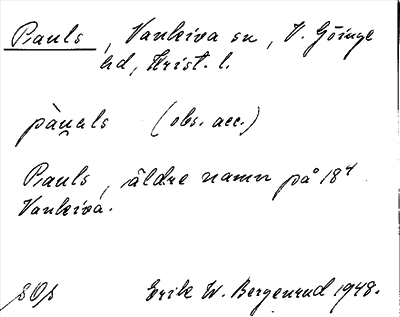 Pauls, Vankiva sn, V. Göinge
hd, Krist. l.
pàu̯als (obs. acc.)
Pauls, äldre namn på 18⁴
Vankiva.
SOs
Erik W. Bergenrud 1948.